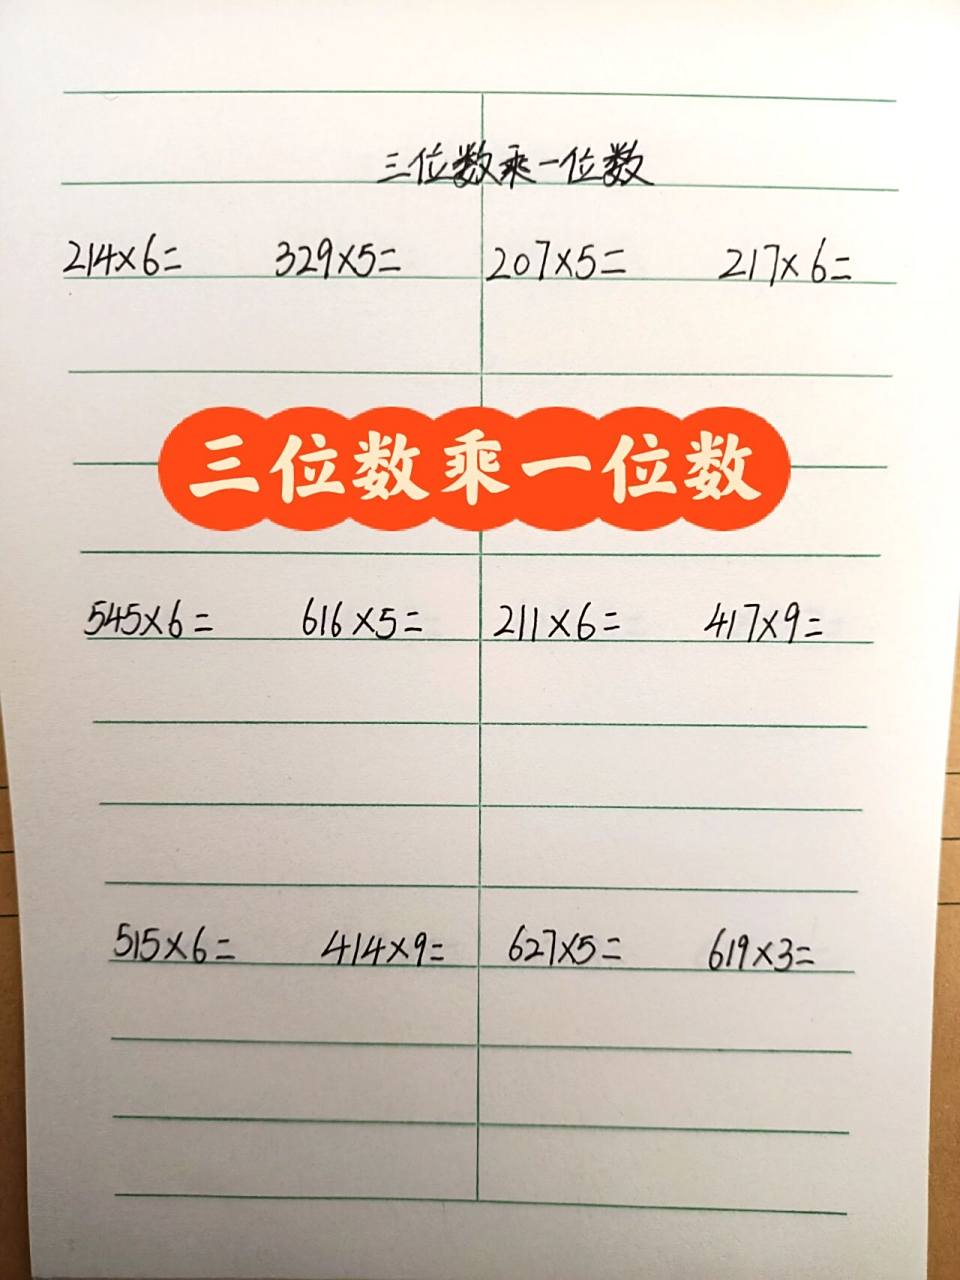 三位数乘一位数
214×6= 329×5= 207×5= 217×6=
三位数乘一位数
545×6= 616×5= 211×6= 417×9=
515×6= 414×9= 627×5= 619×3=